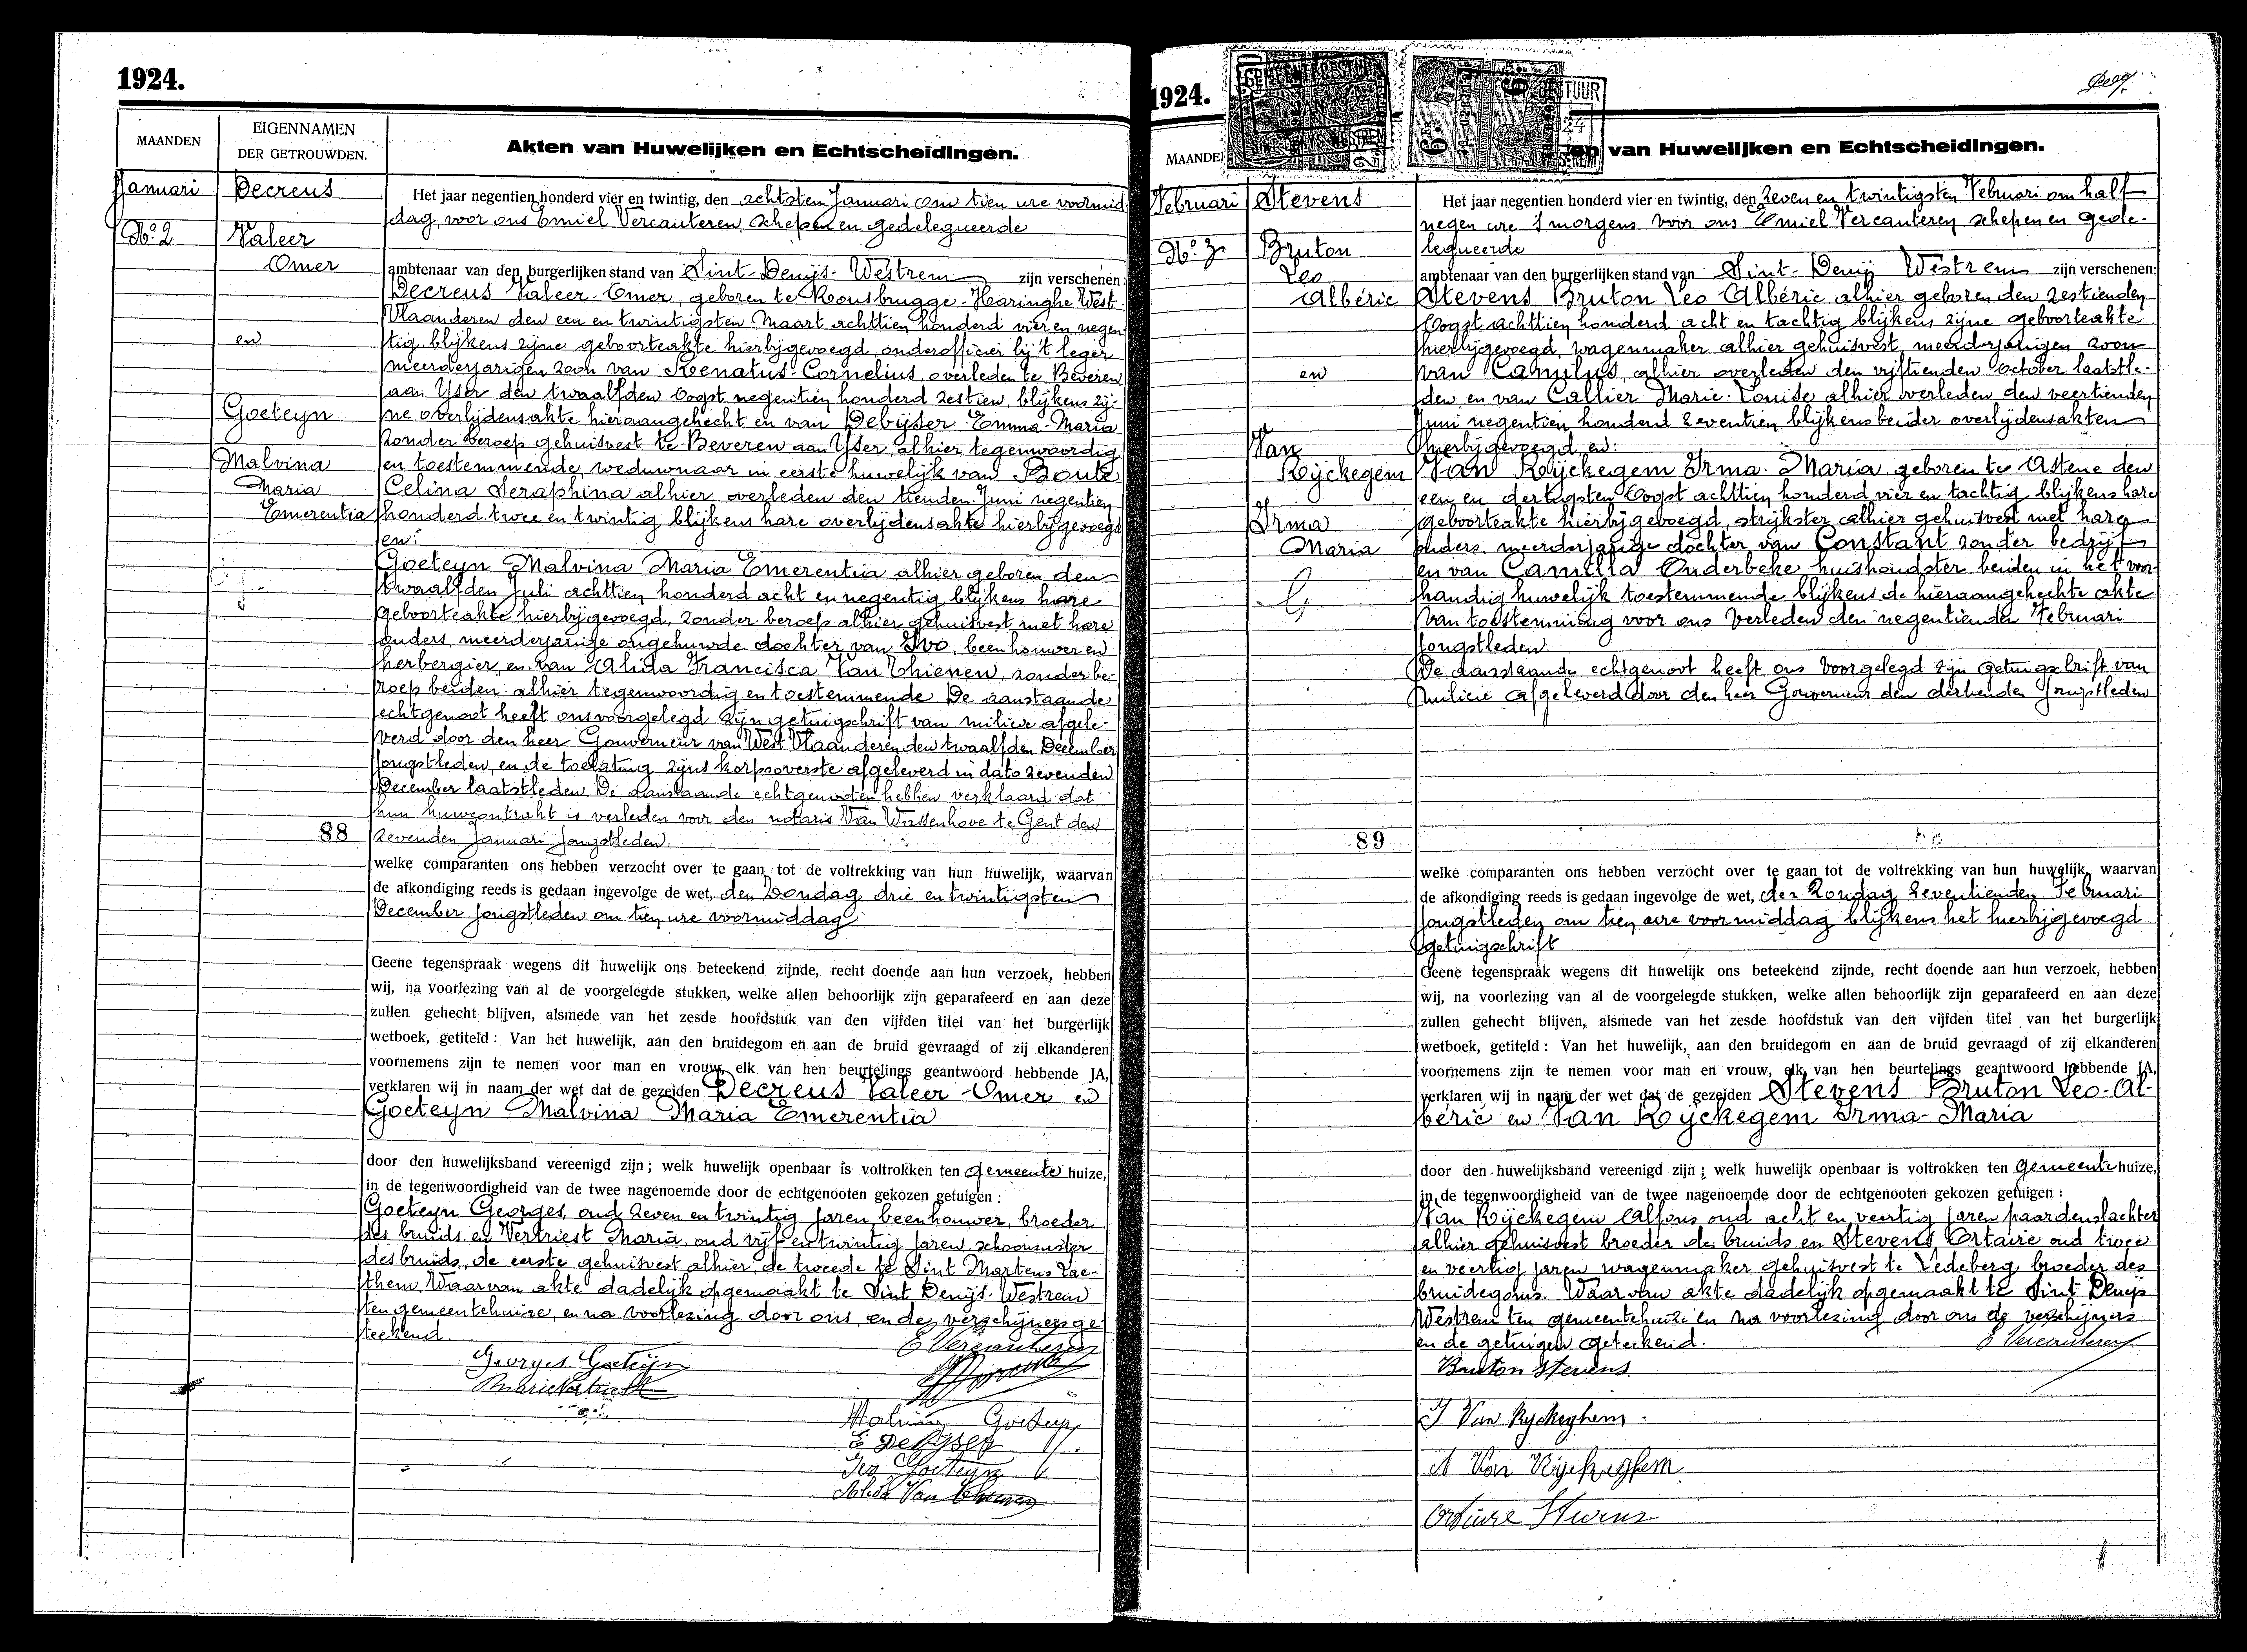 1924.
MAANDEN
EIGENNAMEN
DER GETROUWDEN.
Akten van Huwelijken en Echtscheidingen.
Januari
No. 2
Decreus
Valeer
Omer
en
Goeteyn
Malvina
Maria
Emerentia
88
Het jaar negentien honderd vier en twintig, den achtsten Januari om tien ure voormid
dag, voor ons Emiel Vercauteren, schepen en gedelegueerde
ambtenaar van den burgerlijken stand van Sint-Denijs-Westrem zijn verschenen:
Decreus Valeer-Omer, geboren te Rousbrugge-Haringhe West-
Vlaanderen den een en twintigsten Maart achttien honderd vier en negen
tig blijkens zijne geboorteakte hierbijgevoegd, onderofficier bij 't leger
meerderjarigen zoon van Renatus-Cornelius, overleden te Beveren
aan Yser den twaalfden Oogst negentien honderd zestien, blijkens zij-
ne overlijdensakte hieraangehecht en van Debijser Emma-Maria
zonder beroep gehuisvest te Beveren aan Yser, alhier tegenwoordig
en toestemmende, weduwnaar in eerste huwelijk van Boute
Celina Seraphina alhier overleden den tienden Juni negentien
honderd twee en twintig blijkens hare overlijdensakte hierbijgevoegd
en:
Goeteyn Malvina Maria Emerentia alhier geboren den
twaalfden Juli achttien honderd acht en negentig blijkens hare
geboorteakte hierbijgevoegd, zonder beroep alhier gehuisvest met hare
ouders, meerderjarige ongehuwde dochter van Ivo, beenhouwer en
herbergier, en van Alida Francisca Van Thienen, zonder be-
roep beiden alhier tegenwoordig en toestemmende. De aanstaande
echtgenoot heeft ons voorgelegd zijn getuigschrift van milicie afgele-
verd door den heer Gouverneur van West Vlaanderen den twaalfden December
jongstleden, en de toelating zijns korpsoverste afgeleverd in dato zevenden
December laatstleden. De aanstaande echtgenooten hebben verklaard dat
hun huwcontrakt is verleden voor den notaris Van Wassenhove te Gent den
zevenden Januari jongstleden.
welke comparanten ons hebben verzocht over te gaan tot de voltrekking van hun huwelijk, waarvan
de afkondiging reeds is gedaan ingevolge de wet, den Zondag drie en twintigsten
December jongstleden om tien ure voormiddag
Geene tegenspraak wegens dit huwelijk ons beteekend zijnde, recht doende aan hun verzoek, hebben
wij, na voorlezing van al de voorgelegde stukken, welke allen behoorlijk zijn geparafeerd en aan deze
zullen gehecht blijven, alsmede van het zesde hoofdstuk van den vijfden titel van het burgerlijk
wetboek, getiteld : Van het huwelijk, aan den bruidegom en aan de bruid gevraagd of zij elkanderen
voornemens zijn te nemen voor man en vrouw, elk van hen beurtelings geantwoord hebbende JA,
verklaren wij in naam der wet dat de gezeiden Decreus Valeer-Omer en
Goeteyn Malvina Maria Emerentia
door den huwelijksband vereenigd zijn ; welk huwelijk openbaar is voltrokken ten gemeente huize,
in de tegenwoordigheid van de twee nagenoemde door de echtgenooten gekozen getuigen :
Goeteyn Georges, oud zeven en twintig jaren, beenhouwer, broeder
des bruids en Vertriest Maria, oud vijf en twintig jaren, schoonzuster
des bruids, de eerste gehuisvest alhier, de tweede te Sint Martens Lae-
them. Waarvan akte dadelijk opgemaakt te Sint Denijs-Westrem
ten gemeentehuize, en na voorlezing door ons en de verschijners ge-
teekend.
E Vercauteren
Georges Goeteyn
Malvina Goeteyn
E Debyser
Ivo Goeteyn
Alida Van Thienen
1924.
Akten van Huwelijken en Echtscheidingen.
Februari
No. 3
Stevens
Bruton
Leo
Albéric
en
Van
Rijckegem
Irma
Maria
89
Het jaar negentien honderd vier en twintig, den zeven en twintigsten Februari om half
negen ure 's morgens voor ons Emiel Vercauteren, schepen en gede-
legueerde
ambtenaar van den burgerlijken stand van Sint-Denijs Westrem zijn verschenen:
Stevens Bruton Leo Albéric alhier geboren den zestienden
Oogst achttien honderd acht en tachtig blijkens zijne geboorteakte
hierbijgevoegd, wagenmaker alhier gehuisvest, meerderjarigen zoon
van Camilus alhier overleden den vijftienden October laatstle-
den en van Callier Marie-Louise alhier overleden den veertienden
Juni negentien honderd zeventien, blijkens beider overlijdensakten
hierbijgevoegd, en:
Van Rijckegem Irma-Maria, geboren te Astene den
een en dertigsten Oogst achttien honderd vier en tachtig blijkens hare
geboorteakte hierbijgevoegd, strijkster alhier gehuisvest met hare
ouders, meerderjarige dochter van Constant zonder bedrijf
en van Camilla Onderbeke huishoudster, beiden in het voor-
handig huwelijk toestemmende blijkens de hieraangehechte akte
van toestemming voor ons verleden den negentienden Februari
jongstleden
De aanstaande echtgenoot heeft ons voorgelegd zijn getuigschrift van
milicie afgeleverd door den heer Gouverneur den dertienden jongstleden
welke comparanten ons hebben verzocht over te gaan tot de voltrekking van hun huwelijk, waarvan
de afkondiging reeds is gedaan ingevolge de wet, den Zondag zeventienden Februari
jongstleden om tien ure voormiddag blijkens het hierbijgevoegd
getuigschrift
Geene tegenspraak wegens dit huwelijk ons beteekend zijnde, recht doende aan hun verzoek, hebben
wij, na voorlezing van al de voorgelegde stukken, welke allen behoorlijk zijn geparafeerd en aan deze
zullen gehecht blijven, alsmede van het zesde hoofdstuk van den vijfden titel van het burgerlijk
wetboek, getiteld : Van het huwelijk, aan den bruidegom en aan de bruid gevraagd of zij elkanderen
voornemens zijn te nemen voor man en vrouw, elk van hen beurtelings geantwoord hebbende JA,
verklaren wij in naam der wet dat de gezeiden Stevens Bruton Leo-Al-
béric en Van Rijckegem Irma-Maria
door den huwelijksband vereenigd zijn ; welk huwelijk openbaar is voltrokken ten gemeente huize,
in de tegenwoordigheid van de twee nagenoemde door de echtgenooten gekozen getuigen :
Van Rijckegem Alfons oud acht en veertig jaren paardenslachter
alhier gehuisvest broeder des bruids en Stevens Ortaire oud twee
en veertig jaren wagenmaker gehuisvest te Ledeberg broeder des
bruidegoms. Waarvan akte dadelijk opgemaakt te Sint Denijs
Westrem ten gemeentehuize en na voorlezing door ons de verschijners
en de getuigen geteekend.
E Vercauteren
Bruton Stevens
I Van Ryckeghem
A Van Rijckeghem
Ortaire Stevens